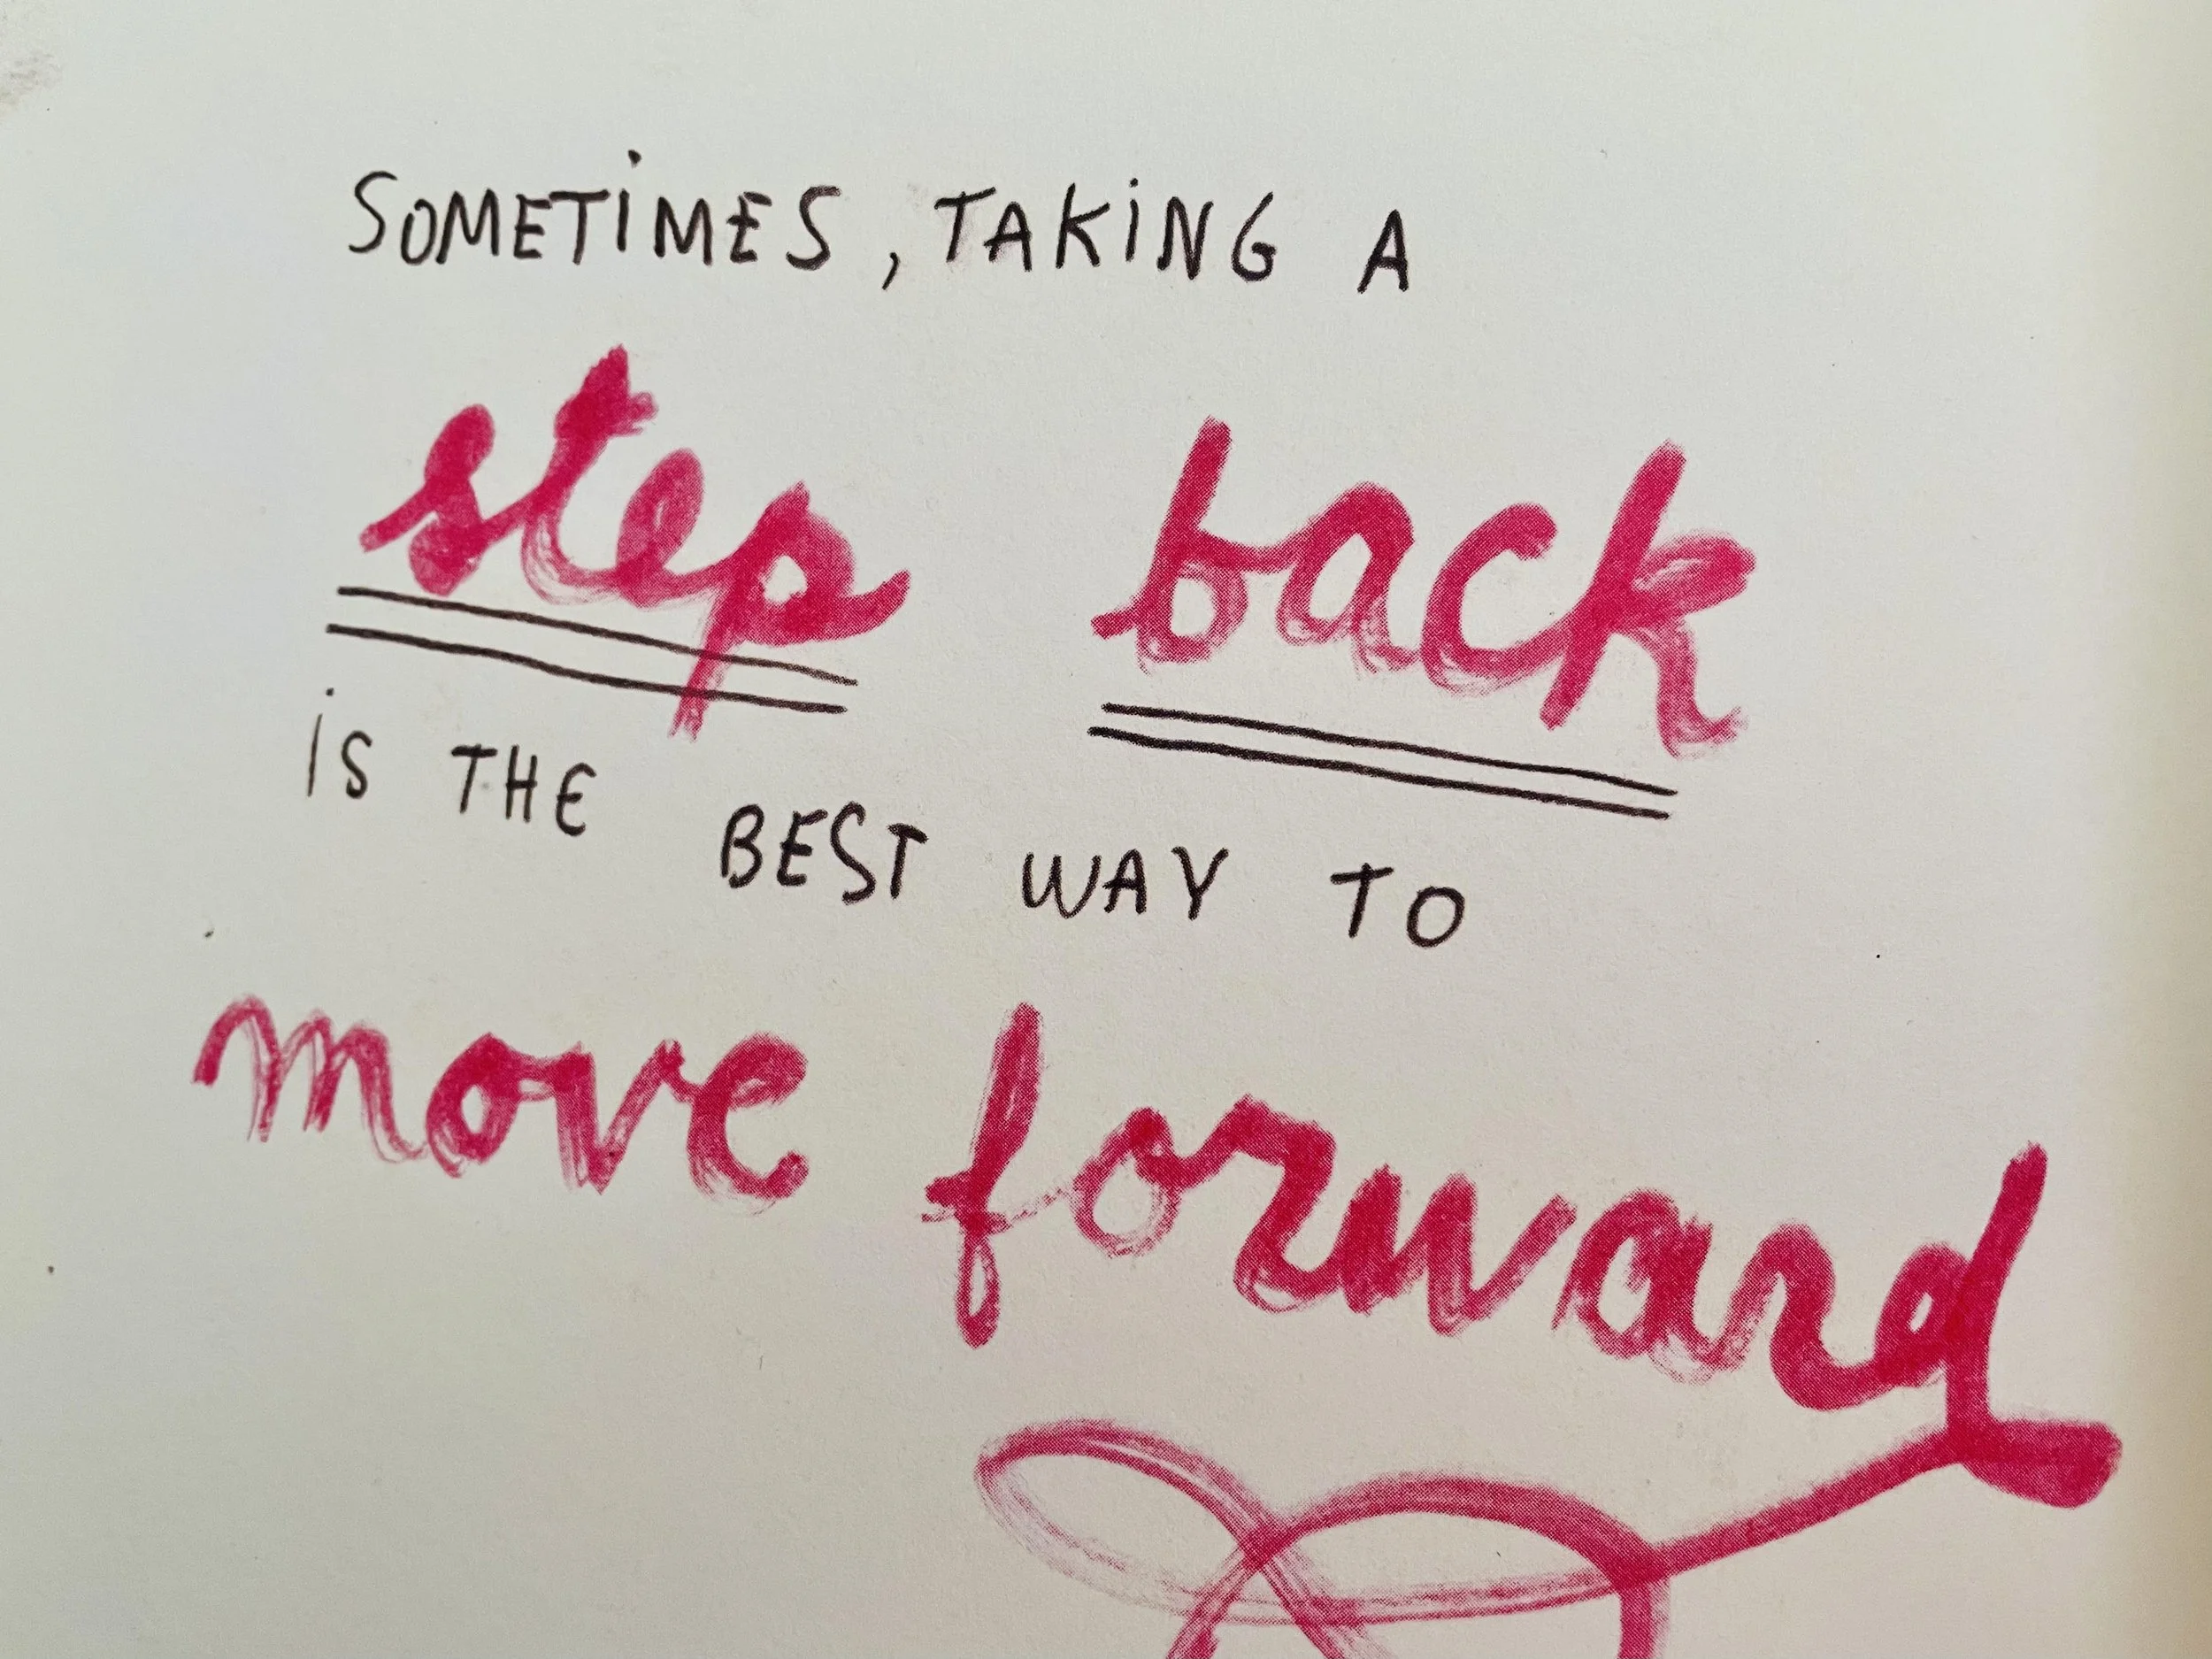 SOMETIMES, TAKING A
step back
iS THE BEST WAY TO
move forward